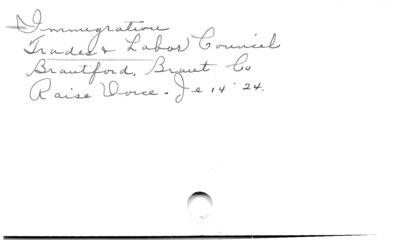 Immigration
Trades & Labor Council
Brantford, Brant Co
Raise Voice - Je 14 '24.